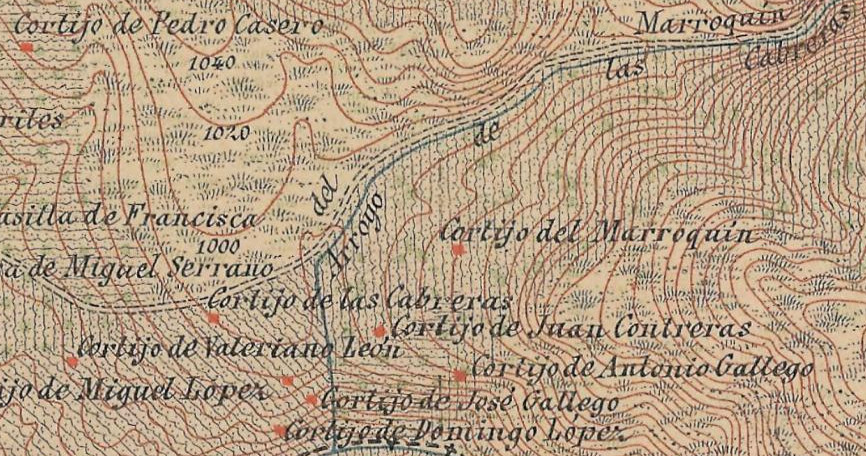 Cortijo de Pedro Casero
Marroquín
Cabreras
1040
las
1020
de
del
Arroyo
de Francisca
1000
Cortijo del Marroquín
de Miguel Serrano
Cortijo de las Cabreras
Cortijo de Juan Contreras
Cortijo de Valeriano León
Cortijo de Antonio Gallego
de Miguel Lopez
Cortijo de José Gallego
Cortijo de Domingo Lopez